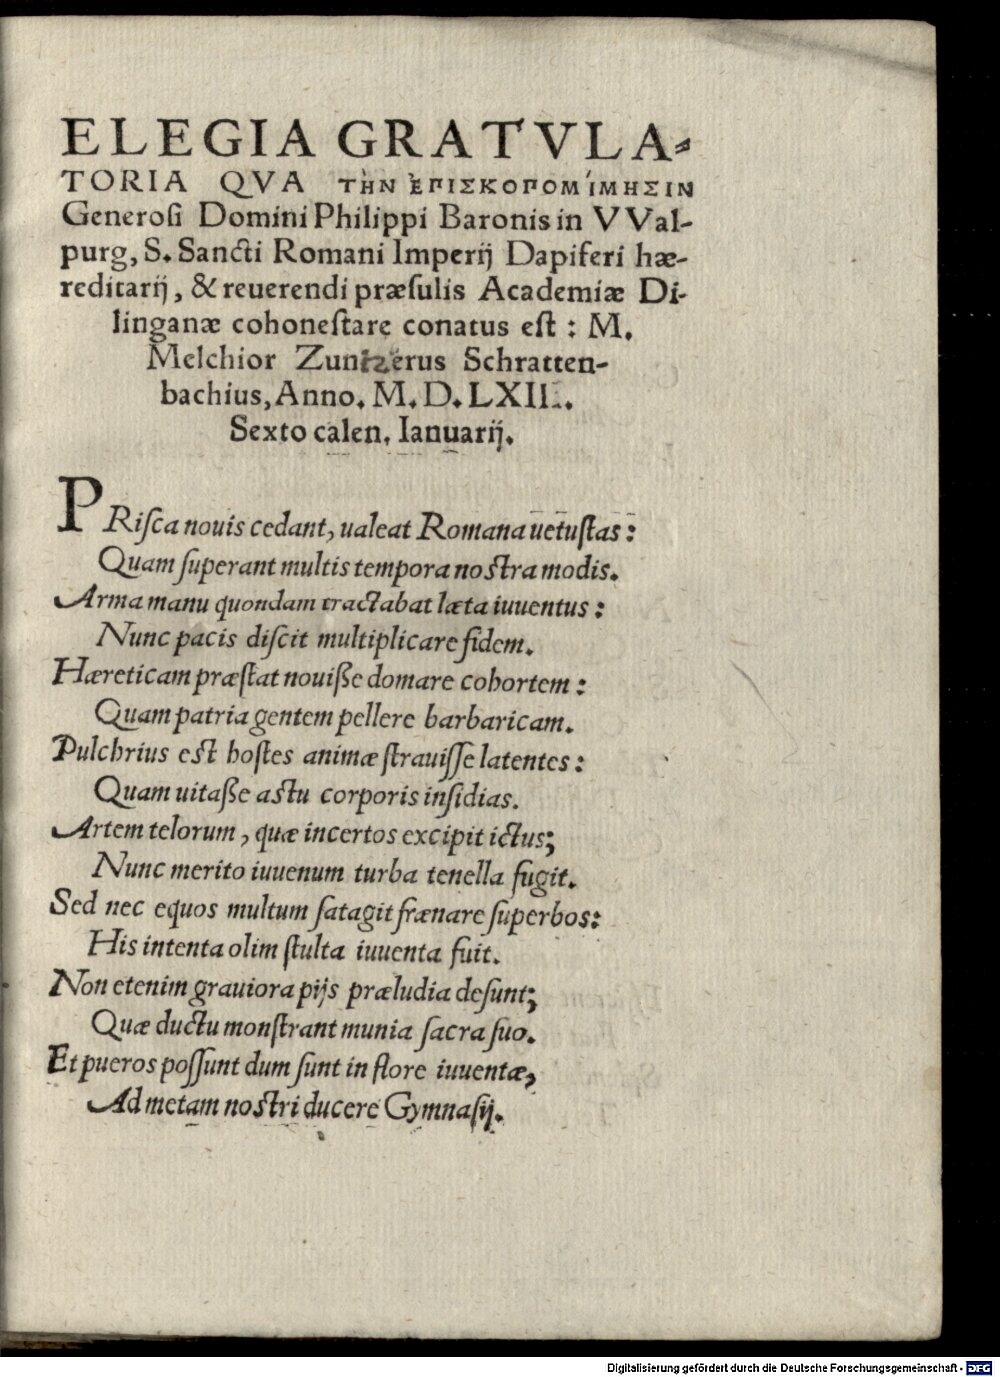 ELEGIA GRATVLA⸗
TORIA QVA ΤῊΝ ἘΠΙΣΚΟΠΟΜΊΜΗΣΙΝ
Generoſi Domini Philippi Baronis in VVal-
purg, S. Sancti Romani Imperij Dapiferi hæ-
reditarij, & reuerendi præſulis Academiæ Di-
linganæ cohoneſtare conatus eſt : M.
Melchior Zuntzerus Schratten-
bachius, Anno. M. D. LXII.
Sexto calen. Ianuarij.
PRiſca nouis cedant, ualeat Romana uetuſtas :
Quam ſuperant multis tempora noſtra modis.
Arma manu quondam tractabat læta iuuentus :
Nunc pacis diſcit multiplicare fidem.
Hæreticam præſtat nouiße domare cohortem :
Quam patria gentem pellere barbaricam.
Pulchrius eſt hoſtes animæ ſtrauiſſe latentes :
Quam uitaße aſtu corporis inſidias.
Artem telorum, quæ incertos excipit ictus;
Nunc merito iuuenum turba tenella fugit.
Sed nec equos multum ſatagit frænare ſuperbos:
His intenta olim ſtulta iuuenta fuit.
Non etenim grauiora pijs præludia deſunt;
Quæ ductu monſtrant munia ſacra ſuo.
Et pueros poſſunt dum ſunt in flore iuuentæ,
Ad metam noſtri ducere Gymnaſij.
Digitalisierung gefördert durch die Deutsche Forschungsgemeinschaft - DFG